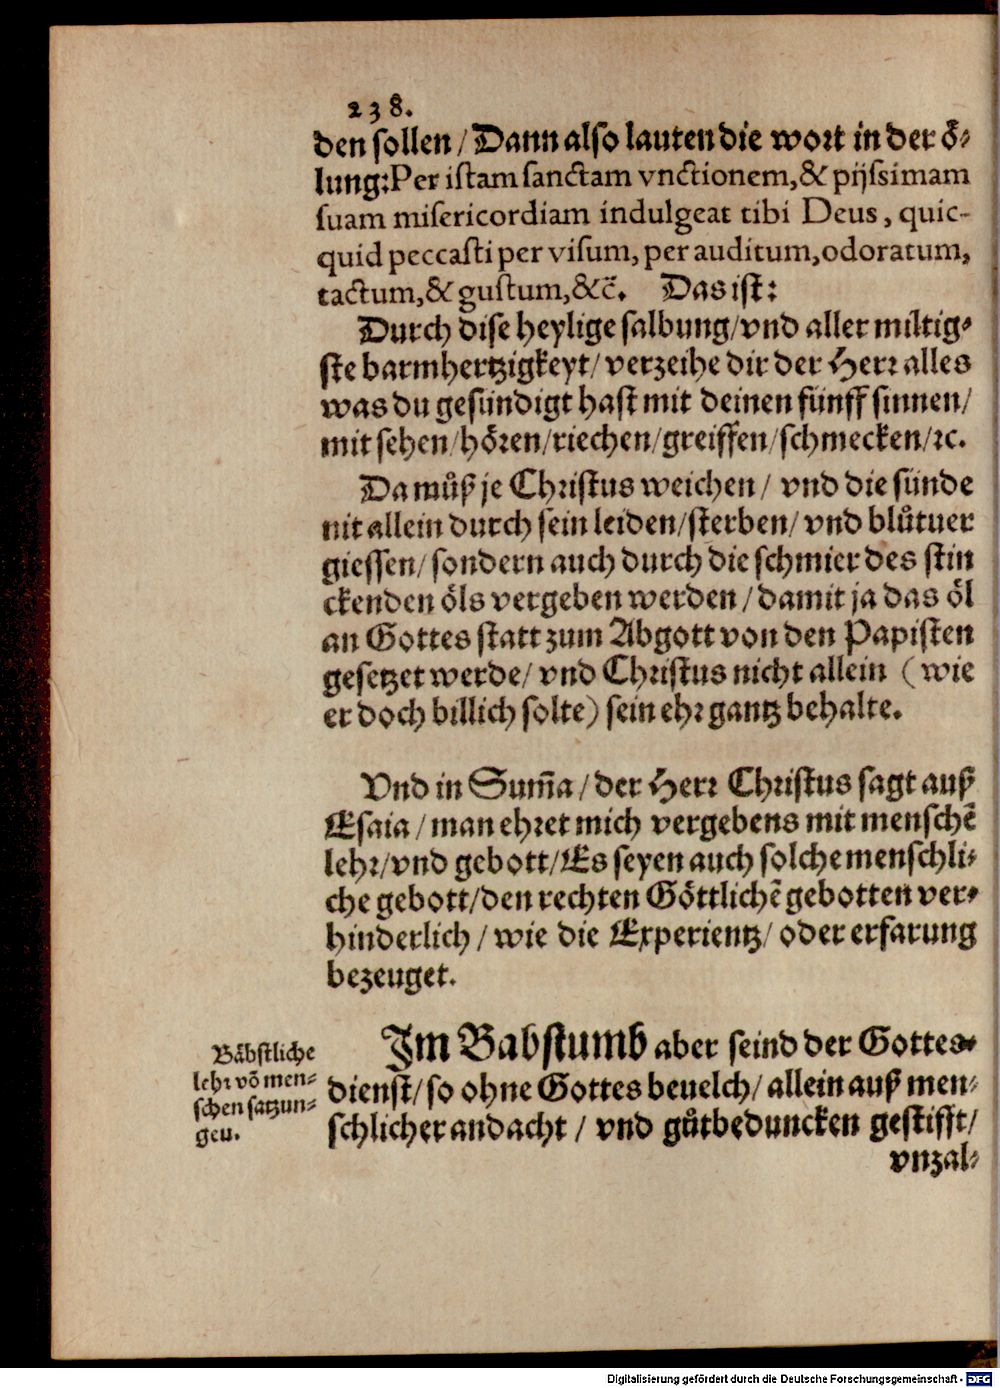 238.
den sollen / Dann also lauten die wort in der oͤ-
lung: Per istam sanctam vnctionem, & pijssimam
suam misericordiam indulgeat tibi Deus, quic-
quid peccasti per visum, per auditum, odoratum,
tactum, & gustum, &c̄. Das ist:
Durch dise heylige salbung/ vnd aller miltig-
ste barmhertzigkeyt/ verzeihe dir der Herr alles
was du gesündigt hast mit deinen fünff sinnen/
mit sehen/ hoͤren/ riechen/ greiffen/ schmecken/ ꝛc.
Da muͦß je Christus weichen/ vnd die sünde
nit allein durch sein leiden/ sterben/ vnd bluͦtuer
giessen/ sondern auch durch die schmier des stin
ckenden oͤls vergeben werden/ damit ja das oͤl
an Gottes statt zum Abgott von den Papisten
gesetzet werde/ vnd Christus nicht allein (wie
er doch billich solte) sein ehr gantz behalte.
Vnd in Sum̄a/ der Herr Christus sagt auß
Esaia/ man ehret mich vergebens mit menschē
lehr/ vnd gebott/ Es seyen auch solche menschli-
che gebott/ den rechten Goͤttlichē gebotten ver-
hinderlich/ wie die Experientz/ oder erfarung
bezeuget.
Baͤbstliche
lehr võ men-
schen satzun-
gen.
Im Babstumb aber seind der Gottes-
dienst/ so ohne Gottes beuelch/ allein auß men-
schlicher andacht/ vnd guͦtbeduncken gestifft/
vnzal-
Digitalisierung gefördert durch die Deutsche Forschungsgemeinschaft - DFG